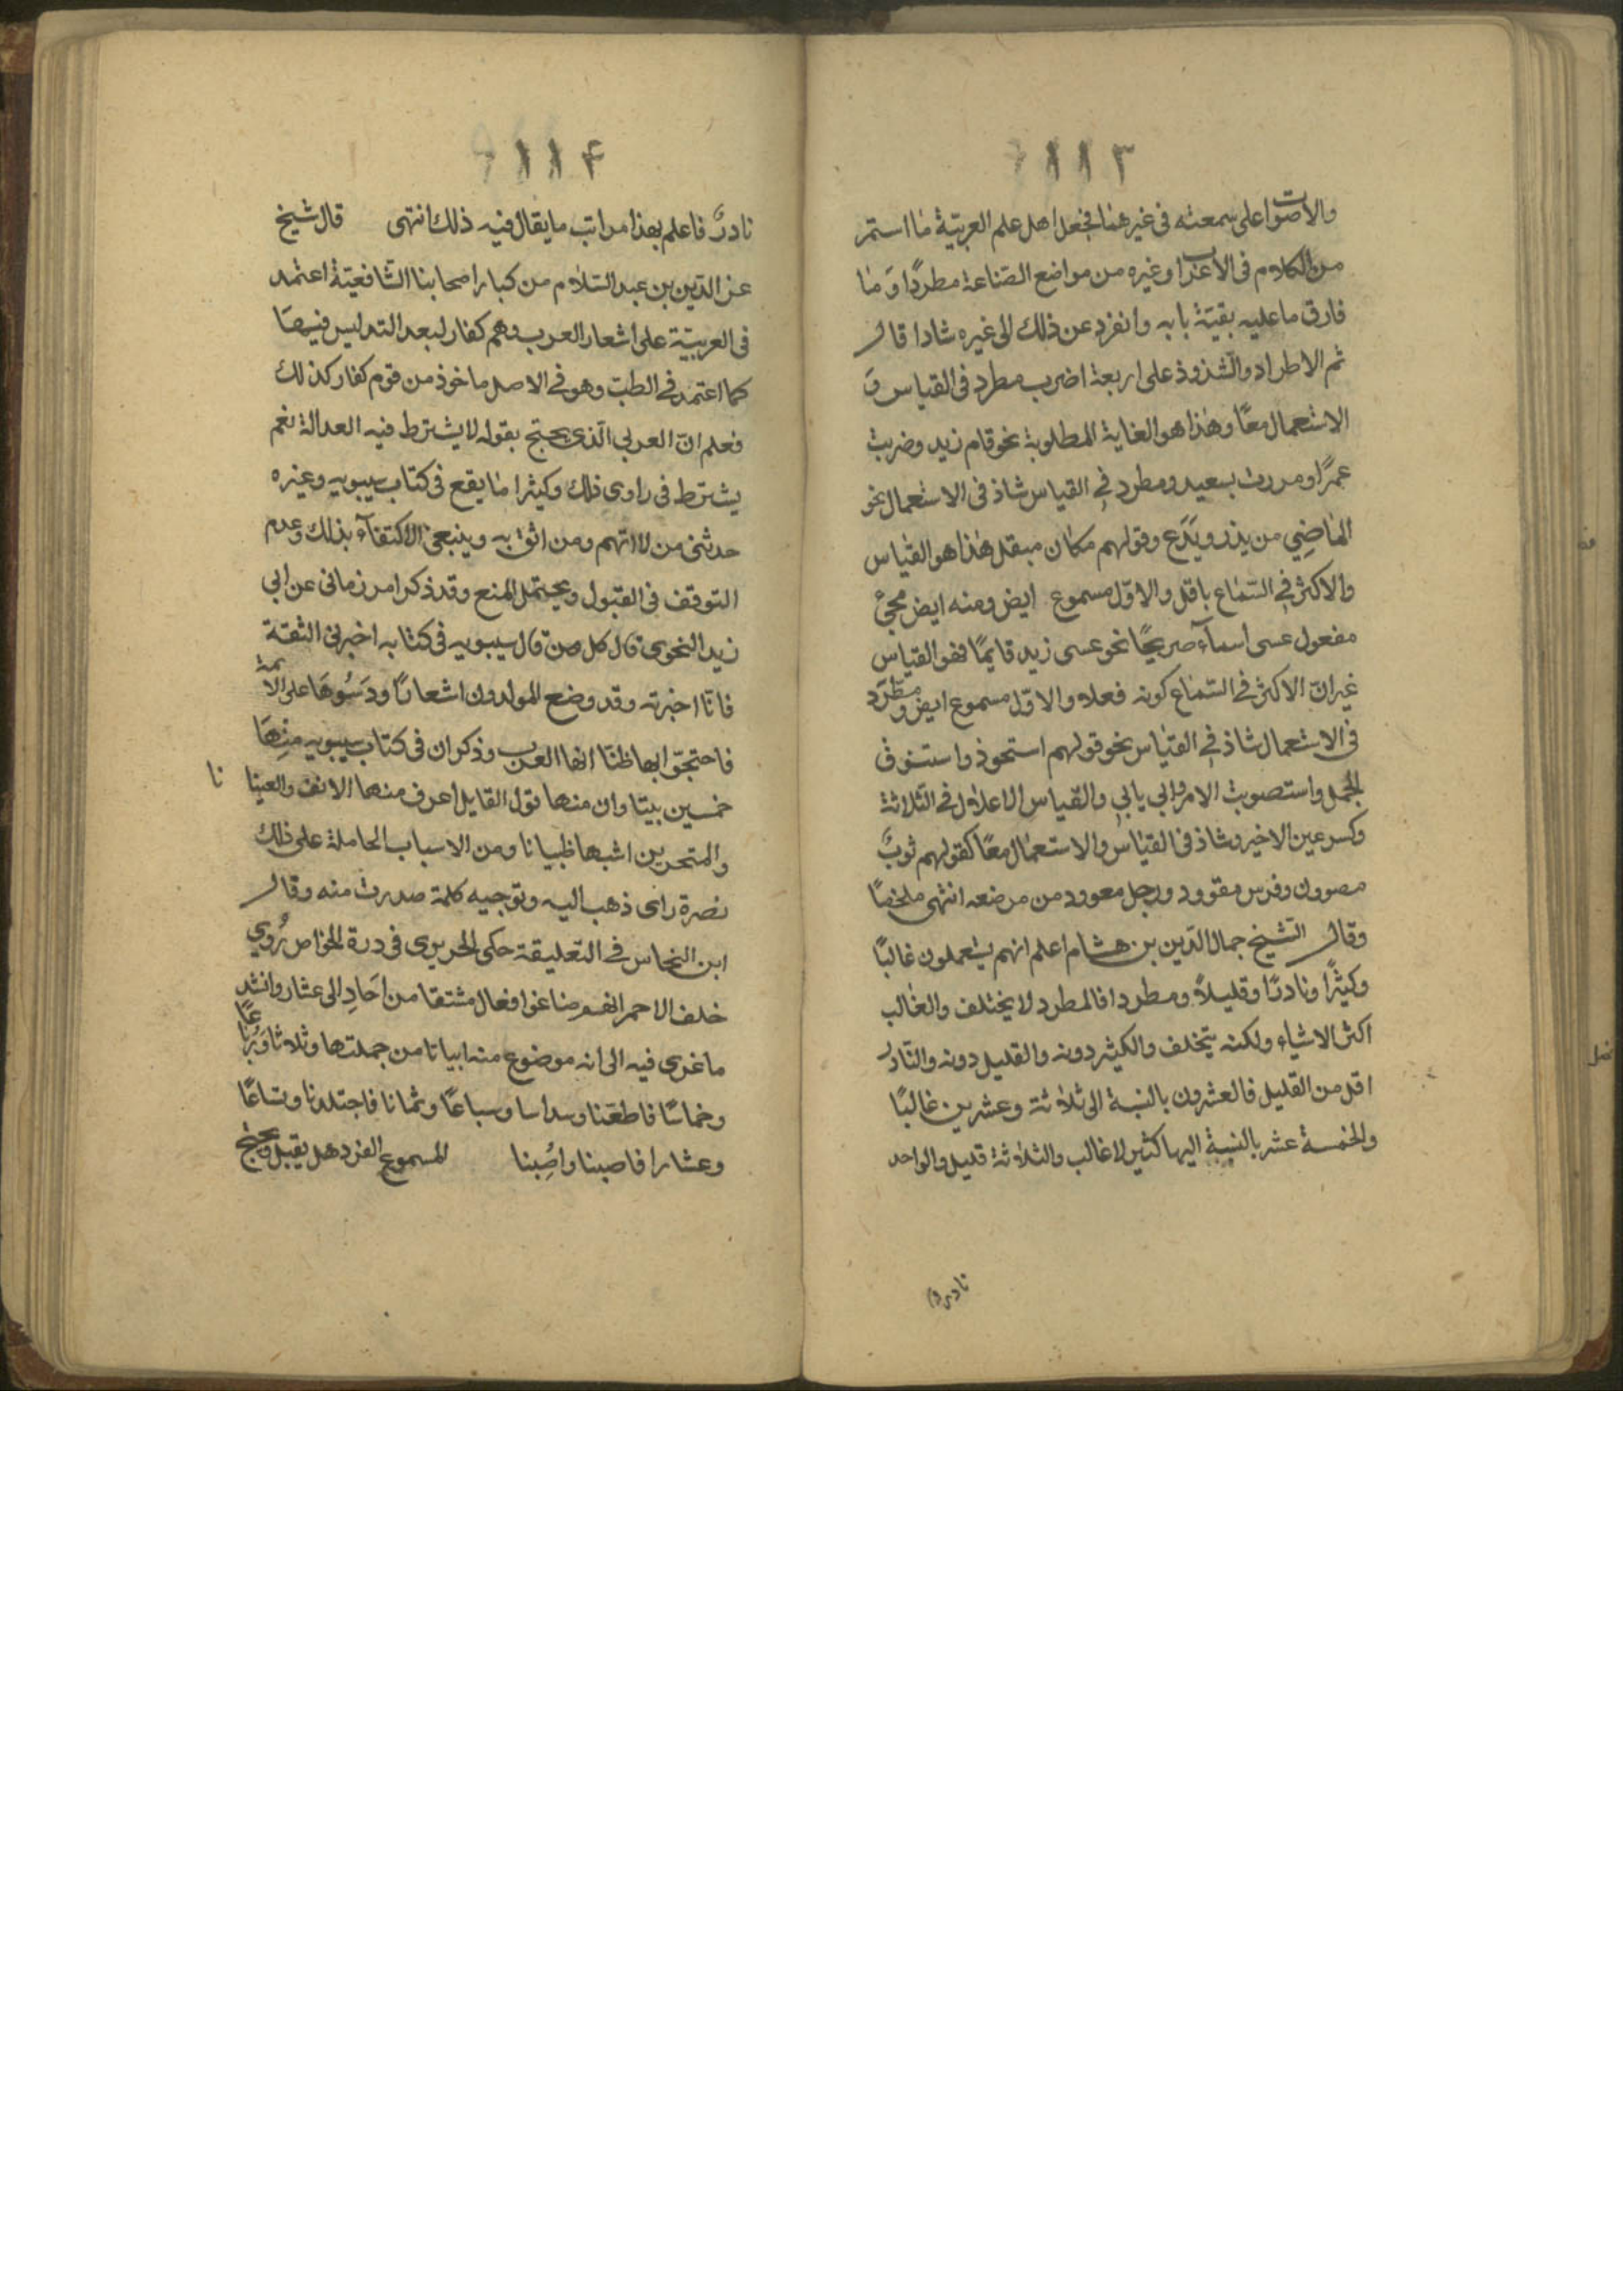 ١١٣
والاصوات على سمعته فى غير هذا فجعل اهل علم العربية ما استمر
من الكلام فى الاعراب وغيره من مواضع الصناعة مطردًا وَ ما
فارق ما عليه بقية بابه وانفرد عن ذلك الى غيره شاذا قال
ثم الاطراد والشذوذ على اربعة اضرب مطرد فى القياس وَ
الاستعمال معًا وهذا هو الغاية المطلوبة نحو قام زيد وضربت
عمرًا ومررت بسعيد ومطرد فى القياس شاذ فى الاستعمال نحو
الماضِي من يذر ويَدَع وقولهم مكان مبقل هذا هو القياس
والاكثر فى السماع باقل والاوّل مسموع ايض ومنه ايض مجئ
مفعول عسى اسمآء صريحًا نحو عسى زيد قايمًا فهو القياس
غير انّ الاكثر فى السماع كونه فعلا والاوّل مسموع ايض ومطرد
فى الاستعمال شاذ فى القياس نحو قولهم استحوذ واستنوق
الجمل واستصوبت الامر وابى يابى والقياس الاعلال فى الثلاثة
وكسر عين الاخير وشاذ فى القياس والاستعمال معًا كقولهم ثوبٌ
مصوون وفرس مقوود ورجل معوود من مرضه انتهى ملخصًا
وقال الشيخ جمال الدّين بن هشام اعلم انهم يستعملون غالبًا
وكثيرًا ونادرًا وقليلاً ومطردا فالمطرد لا يختلف والغالب
اكثر الاشياء ولكنه يتخلف والكثير دونه والقليل دونه والنّادر
اقل من القليل فالعشرون بالنسبة الى ثلاثة وعشرين غالبًا
والخمسة عشر بالنسبة اليها كثير لا غالب والثلاثة قليل والواحد
نادر فا
١١٤
نادرٌ فاعلم بهذا مراتب ما يقال فيه ذلك انتهى قال شيخ
عز الدّين بن عبد السّلام من كبار اصحابنا الشّافعيّة اعتمد
فى العربيّة على اشعار العرب وهم كفار لبعد التدليس فيها
كما اعتمد فى الطبّ وهو فى الاصل ماخوذ من قوم كفار كذلك
فعلم انّ العربى الّذى يحتج بقوله لا يشترط فيه العدالة نعم
يشترط فى راوى ذلك وكثيرا ما يقع فى كتاب سيبويه وغيره
حدثنى من لا اتهم ومن اثق به وينبغى الاكتفآء بذلك وعدم
التوقف فى القبول ويحتمل المنع وقد ذكر امرزمانى عن ابى
زيد النحوى قال كل من قال سيبويه فى كتابه اخبرنى الثقة
فانا اخبرته وقد وضع المولدون اشعارًا ودَسُوهَا على الائمة
فاحتجوّا بها ظنّا انها العرب وذكر ان فى كتاب سيبويه مِنهَا
خمسين بيتا وان منها قول القايل اعرف منها الانف والعينا نا
والمتحرين اشبها ظبيانا ومن الاسباب الحاملة على ذلك
نصرة راى ذهب اليه وتوجيه كلمة صدرت منه وقال
ابن النحاس فى التعليقة حكى الحريرى فى درة الخواص رُوِي
خلف الاحمر انهم صاغوا فعال مشتقا من اَحَادِ الى عشار وانشد
ما غرى فيه الى انه موضوع منه ابياتا من جملتها وثلاثا وَرُباعًا
وخماسًا فاطعَنا وسداسا وسباعًا وثمانا فاجتلدنا وتساعًا
وعشارا فاصبنا واصُبنا للمسموع الفرد هل يقبل ويحتج